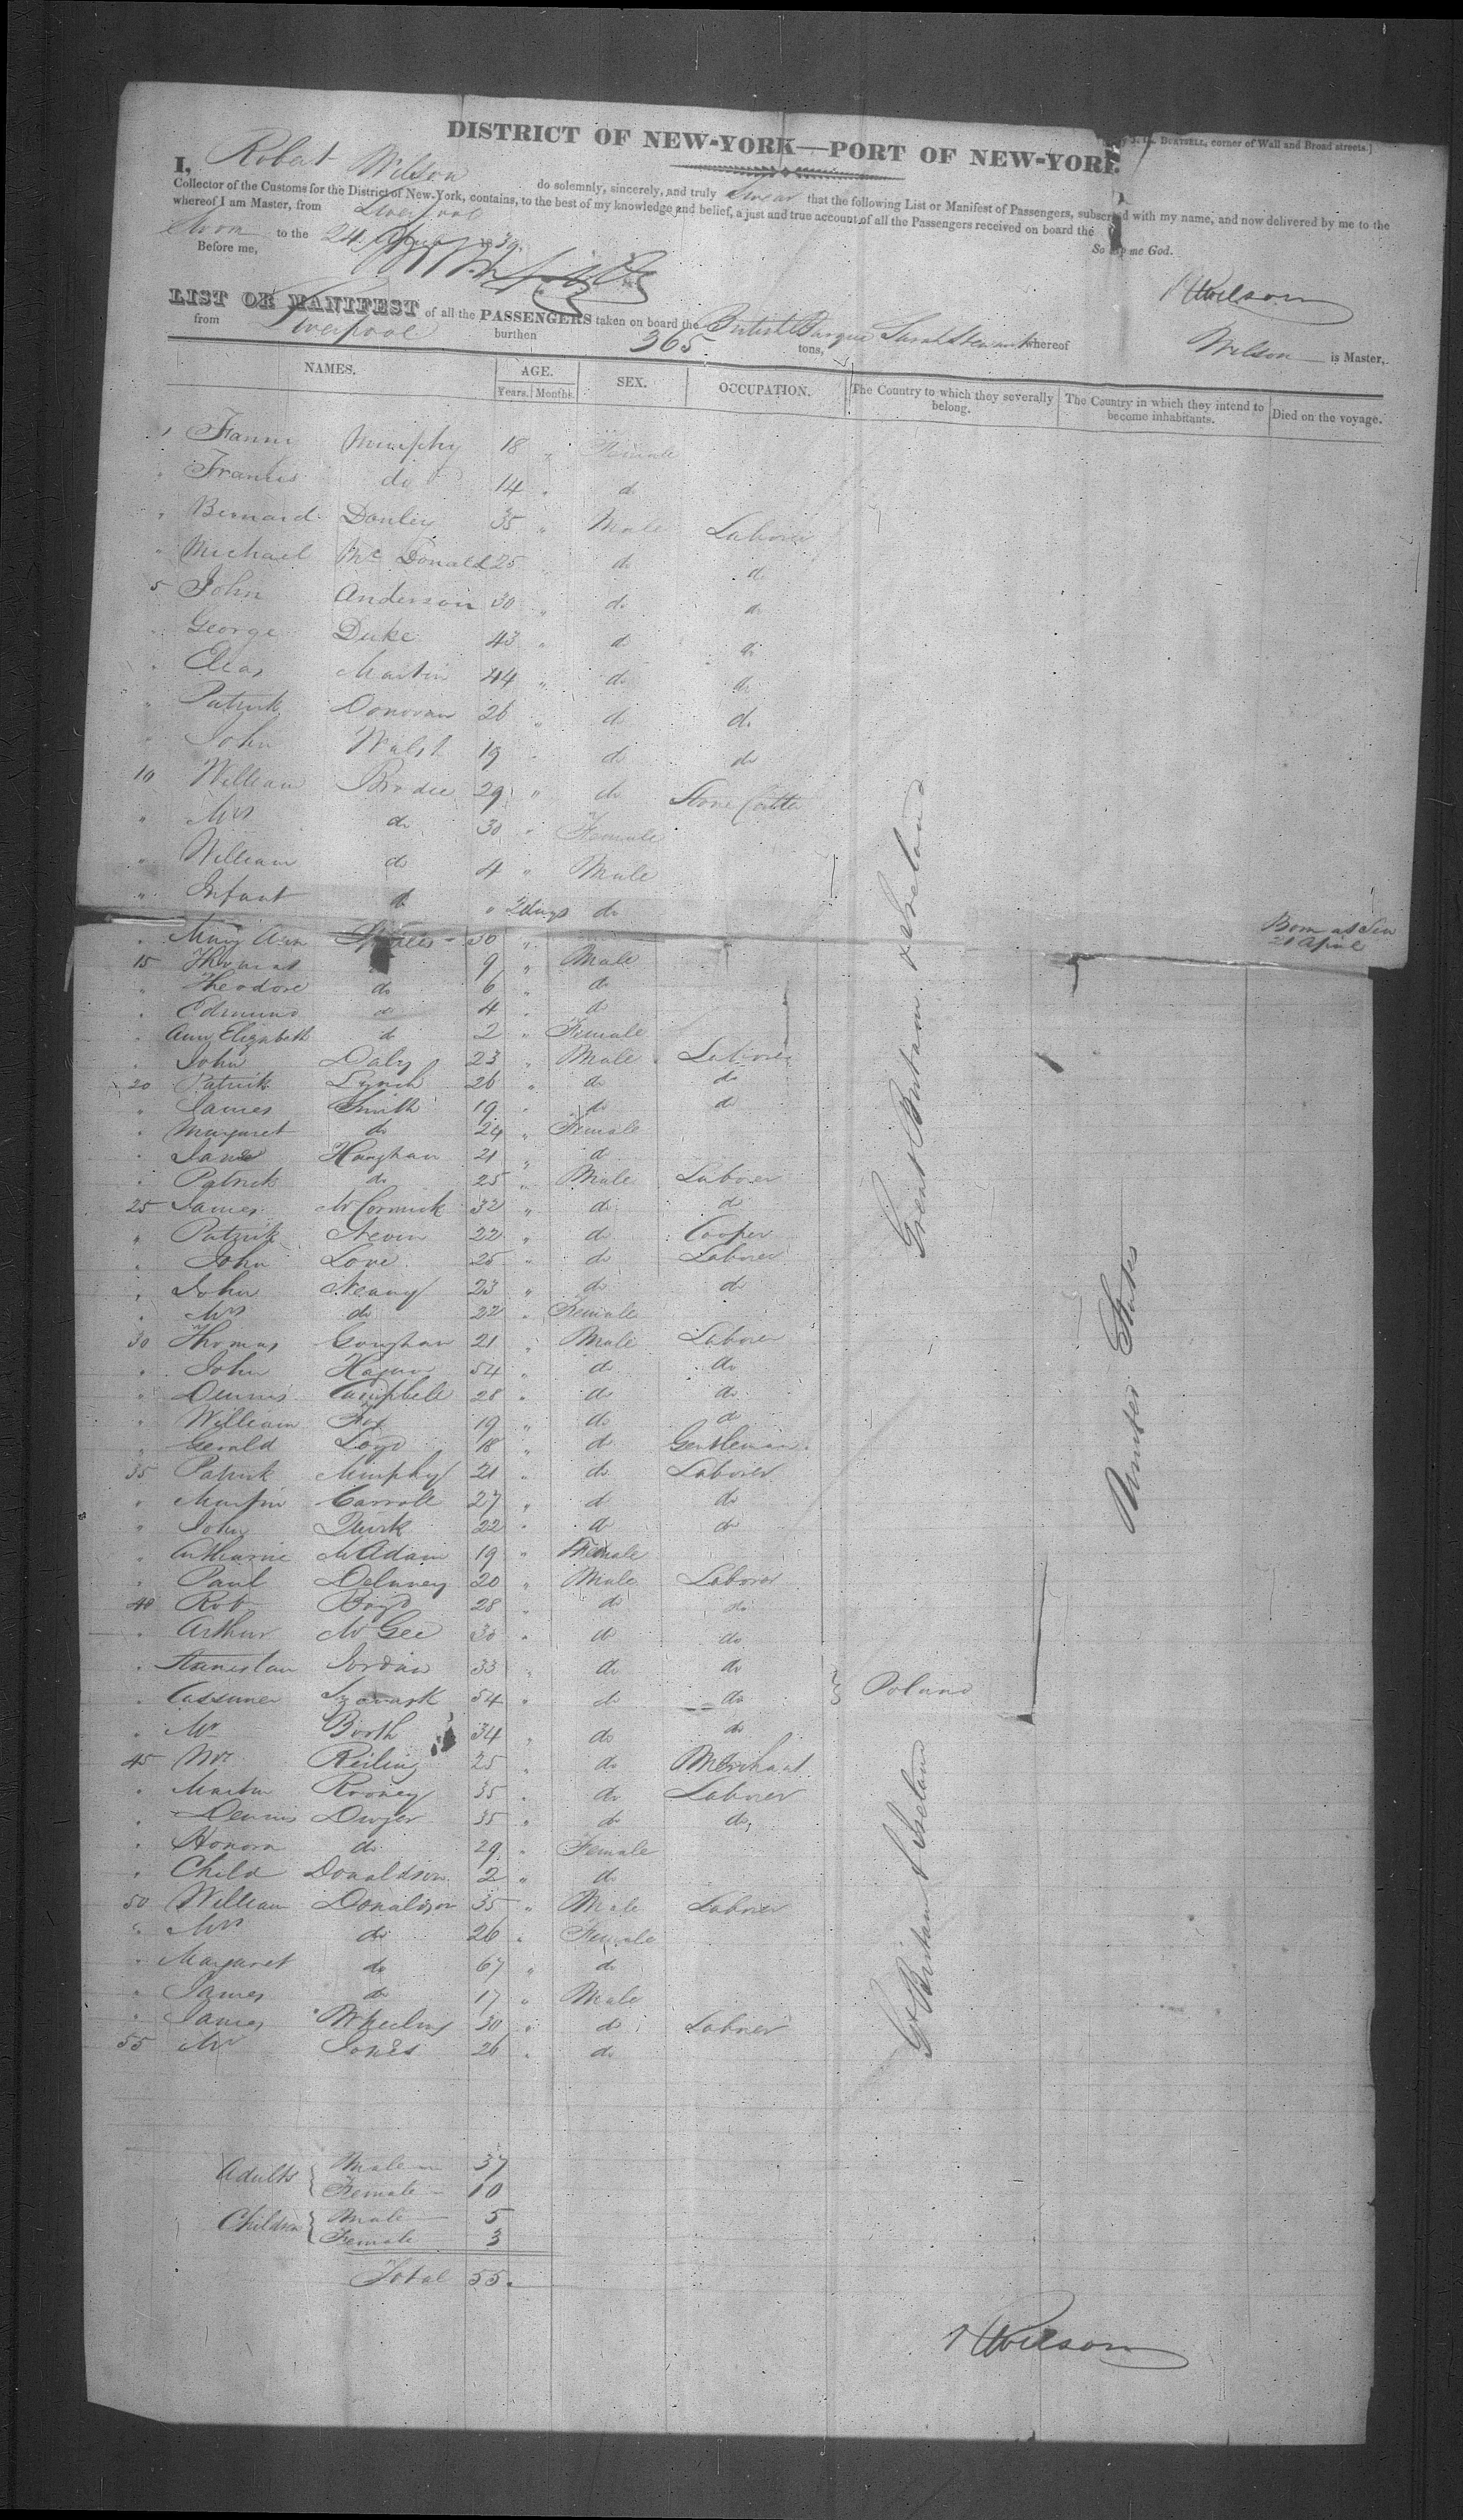 J. H. BURTSELL, corner of Wall and Broad streets.]
DISTRICT OF NEW-YORK—PORT OF NEW-YORK.
I, Robert Wilson do solemnly, sincerely, and truly Swear that the following List or Manifest of Passengers, subscribed with my name, and now delivered by me to the
Collector of the Customs for the District of New-York, contains, to the best of my knowledge and belief, a just and true account of all the Passengers received on board the
whereof I am Master, from Liverpool
Sworn to the 24 April 1839. So help me God.
Before me,
R Wilson
LIST OR MANIFEST of all the PASSENGERS taken on board the British Barque Sarah Stewart whereof Wilson is Master,
from Liverpool burthen 365 tons,
NAMES. AGE. SEX. OCCUPATION. The Country to which they severally belong. The Country in which they intend to become inhabitants. Died on the voyage.
Years. Months.
1 Fanny Murphy 18 " Female
" Francis do 14 " do
" Bernard Donley 35 " Male Laborer
" Michael Mc Donald 25 " do do
5 John Anderson 30 " do do
" George Duke 43 " do do
" Elias Martin 44 " do do
" Patrick Donovan 26 " do do
" John Walsh 19 " do do
10 William Brodie 29 " do Stone Cutter
" Mrs do 30 " Female
" William do 4 " Male
" Infant do " 2 days do Born at Sea 21 April
" Mary Ann 30 "
15 Thomas 9 " Male
" Theodore do 6 " do
" Edmund do 4 " do
" Ann Elizabeth do 2 " Female
" John Daly 23 " Male Laborer
20 Patrick Lynch 26 " do do
" James Smith 19 " do do
" Margaret do 24 " Female
" Jane Haughan 21 " do
" Patrick do 25 " Male Laborer
25 James McCormick 32 " do do
" Patrick Nevin 22 " do Cooper
" John Love 25 " do Laborer
" John Neany 23 " do do
" Mrs do 22 " Female
30 Thomas Goughan 21 " Male Laborer
" John Hagan 54 " do do
" Dennis Campbell 28 " do do
" William Fox 19 " do do
" Gerald Loyd 18 " do Gentleman
35 Patrick Murphy 21 " do Laborer
" Martin Carroll 27 " do do
" John Quirk 22 " do do
" Catharine McAdam 19 " Female
" Paul Delaney 20 " Male Laborer
40 Rob Boyd 28 " do do
" Arthur McGee 30 " do do
" Stanislau Jordan 33 " do do
" Cassimer 54 " do do } Poland
" Mr Booth 34 " do do
45 Mr Reiling 25 " do Merchant
" Martin Rooney 35 " do Laborer
" Dennis Dwyer 35 " do do
" Honora do 29 " Female
" Child Donaldson 2 " do
50 William Donaldson 35 " Male Laborer
" Mrs do 26 " Female
" Margaret do 67 " do
" James do 17 " Male
" James Wheeling 30 " do Laborer
55 Mr Jones 26 " do
Great Britain & Ireland
United States
Gt Britain & Ireland
Adults { Male 37
Female 10
Children { Male 5
Female 3
Total 55.
R Wilson